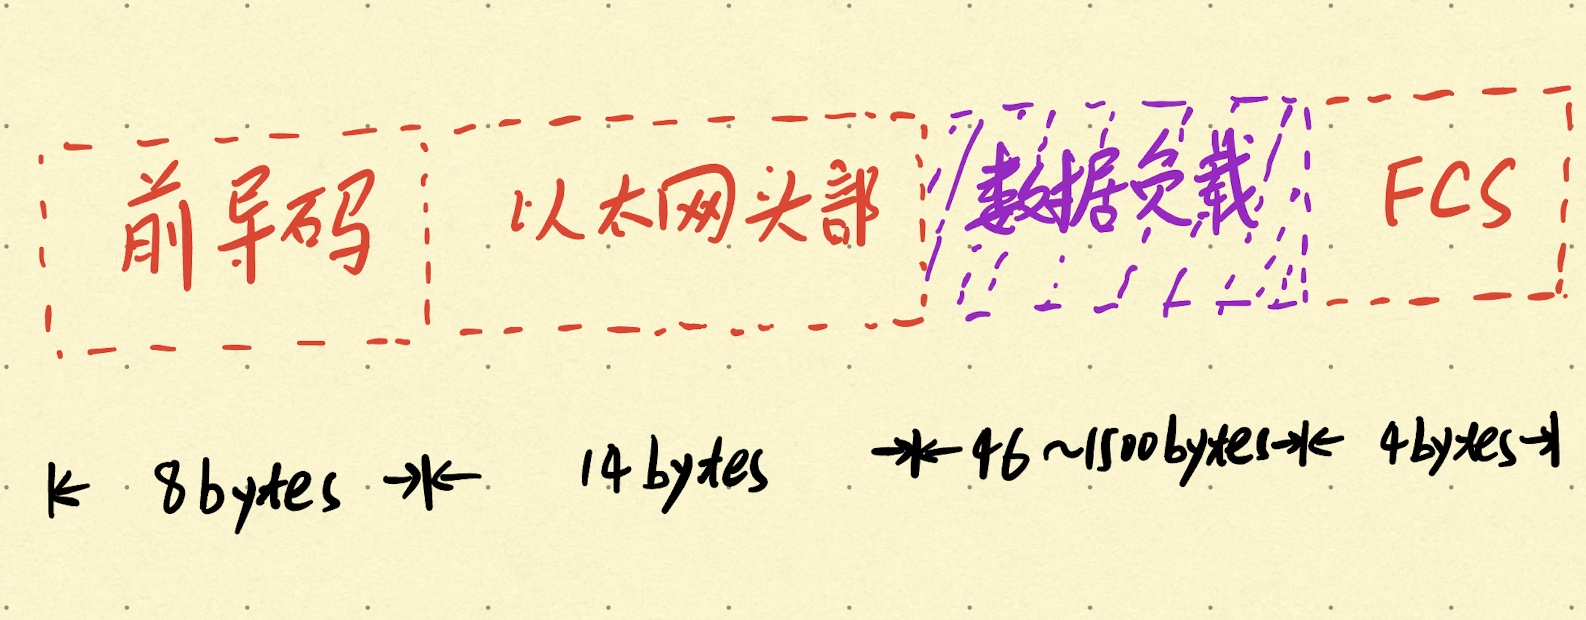 前导码 以太网头部 数据负载 FCS
8bytes 14bytes 46~1500bytes 4bytes